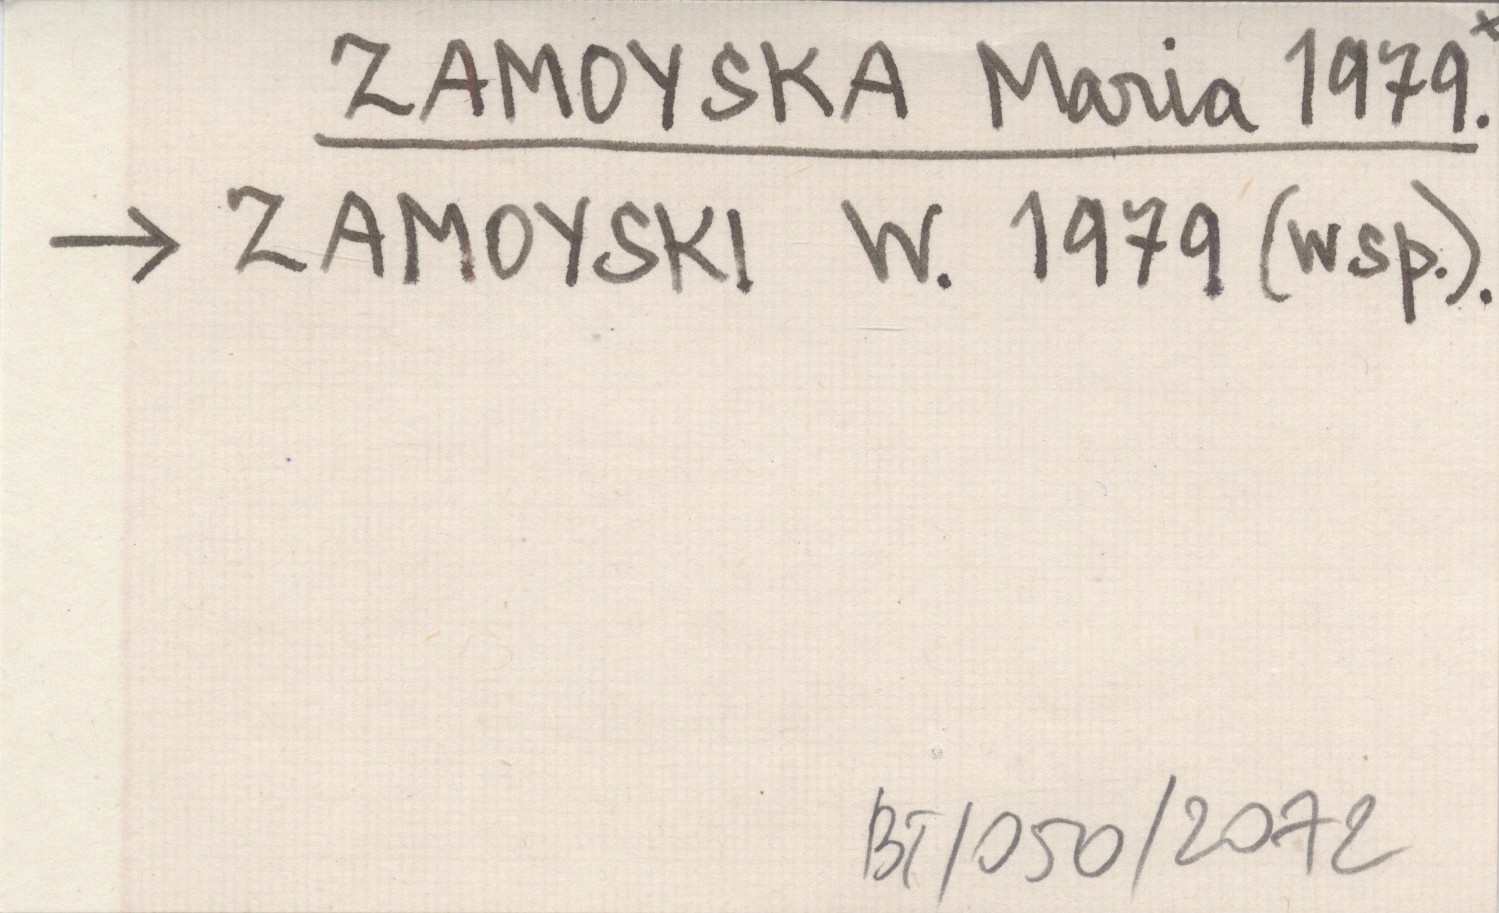 ZAMOYSKA Maria 1979.*
→ ZAMOYSKI W. 1979 (wsp.).
BT/050/2072